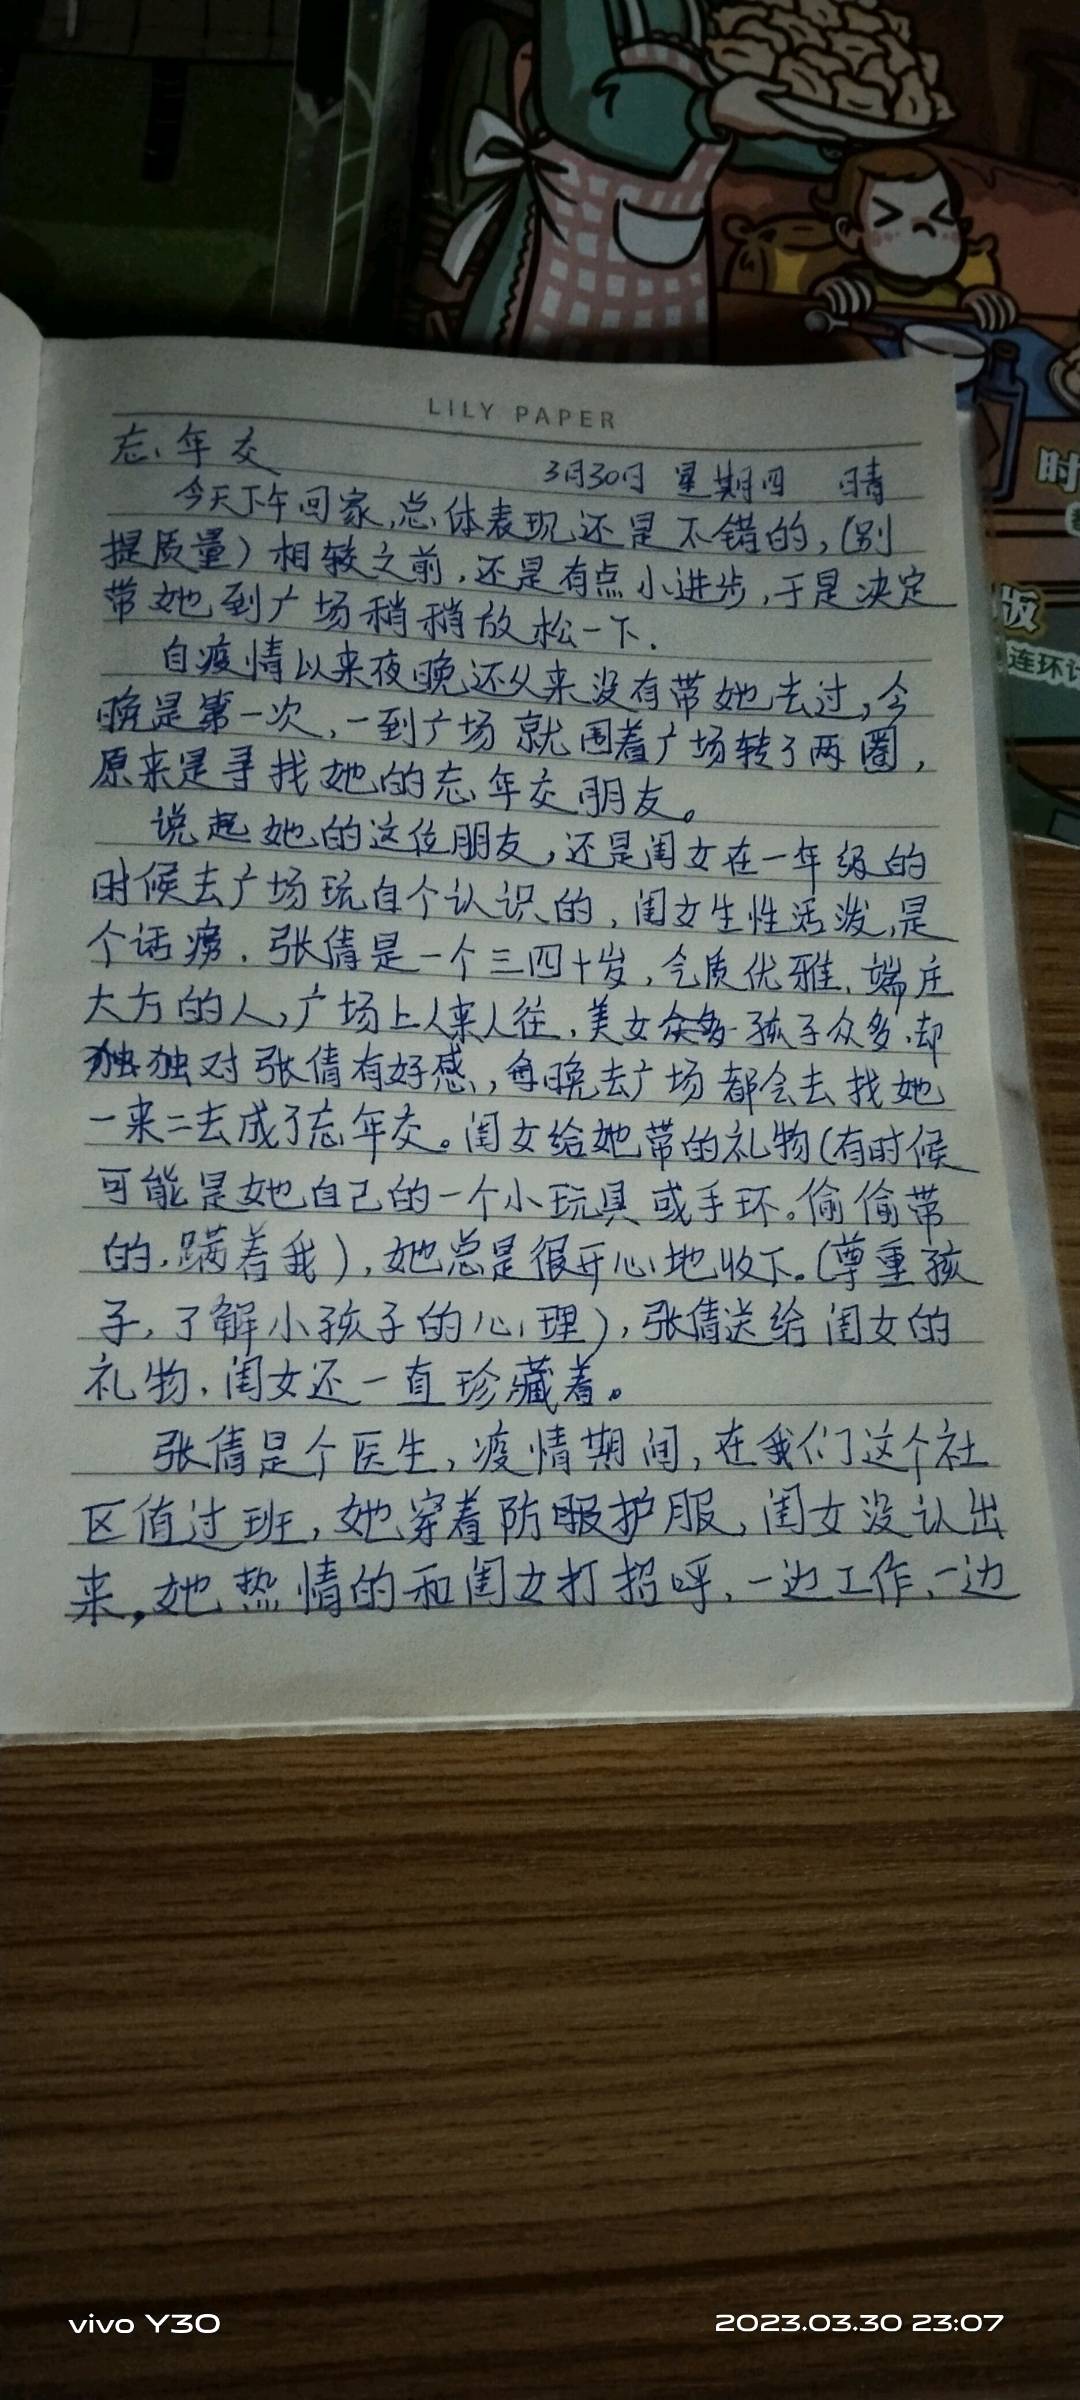 LILY PAPER
忘年交
3月30日 星期四 晴
今天下午回家,总体表现还是不错的,(别
提质量)相较之前,还是有点小进步,于是决定
带她到广场稍稍放松一下.
自疫情以来夜晚还从来没有带她去过,今
晚是第一次,一到广场就围着广场转了两圈,
原来是寻找她的忘年交朋友。
说起她的这位朋友,还是闺女在一年级的
时候去广场玩自个认识的,闺女生性活泼,是
个话痨.张倩是一个三四十岁,气质优雅、端庄
大方的人,广场上人来人往,美女众多孩子众多,却
独独对张倩有好感,每晚去广场都会去找她
一来二去成了忘年交。闺女给她带的礼物(有时候
可能是她自己的一个小玩具或手环。偷偷带
的,瞒着我),她总是很开心地收下。(尊重孩
子,了解小孩子的心理),张倩送给闺女的
礼物,闺女还一直珍藏着。
张倩是个医生,疫情期间,在我们这个社
区值过班,她穿着防护服,闺女没认出
来,她热情的和闺女打招呼,一边工作,一边
时
版
连环计
vivo Y30
2023.03.30 23:07